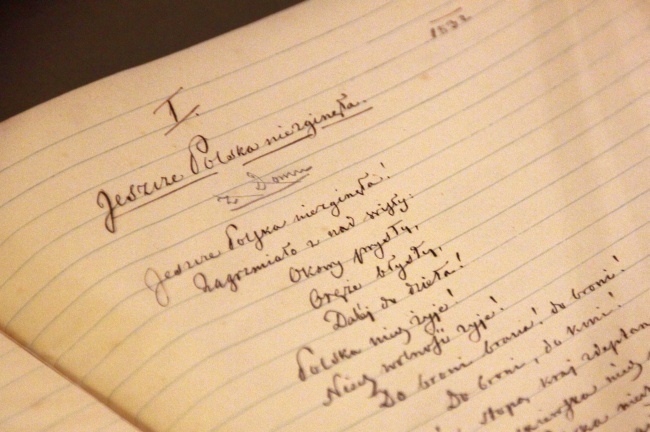 1832
I.
Jeszcze Polska niezginęła.
z Domu
Jeszcze Polska niezginęła!
Zagrzmiało z nad Wisły.
Okowy prysły,
Oręże błysły,
Dalej do dzieła!
Polska niech żyje!
Niech wolność żyje!
Do broni bracia! do broni!
Do broni, do koni!
stopą kraj zdeptan